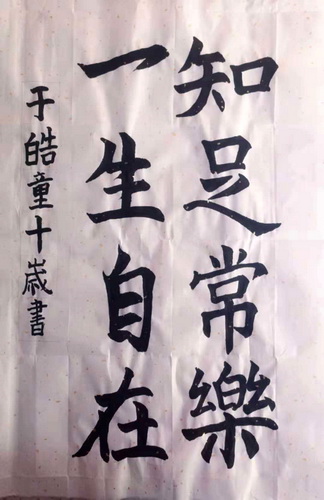 知足常樂
一生自在
于皓童十歲書